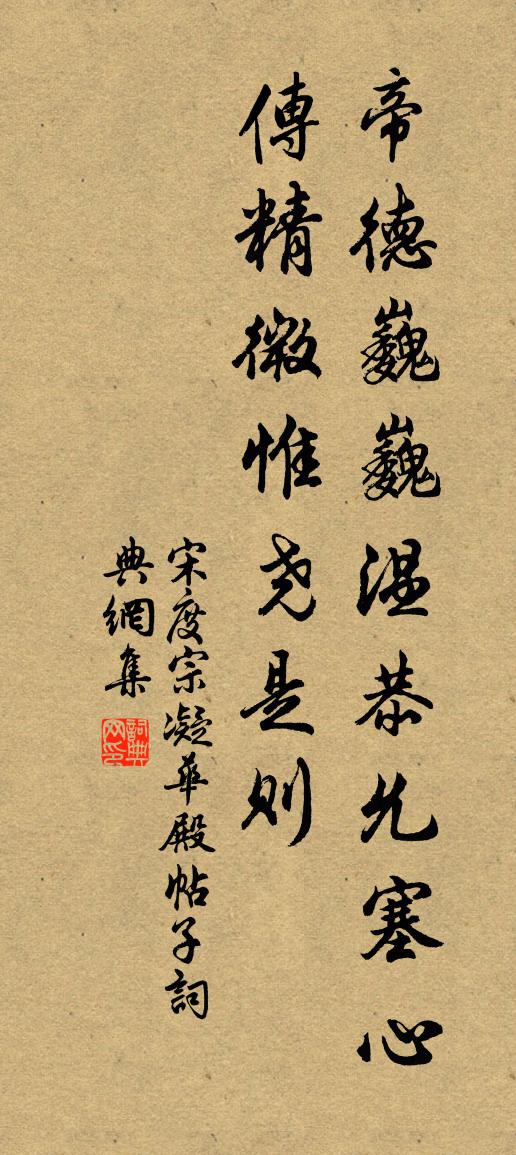 帝德巍巍温恭允塞心
傳精微惟尧是则
宋度宗凝華殿帖子詞
典網集
詞典网印